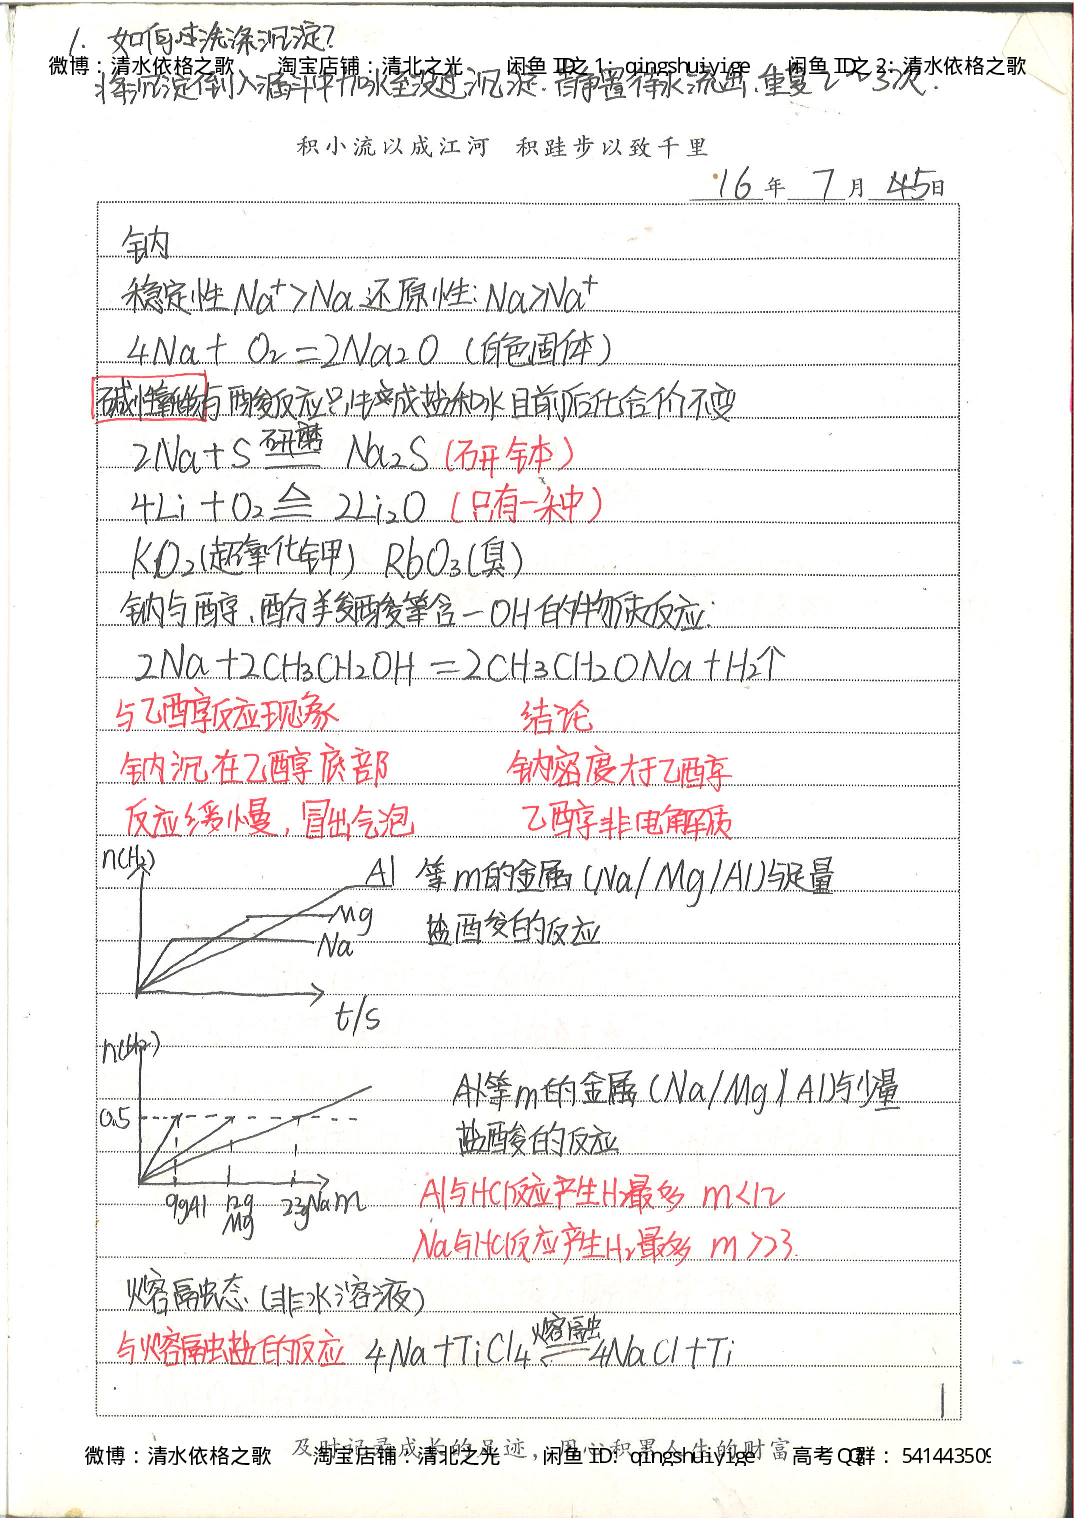 1. 如何洗涤沉淀？
微博：清水依格之歌 淘宝店铺：清北之光 闲鱼 ID之 1：qingshuiyige 闲鱼 ID之 2：清水依格之歌
将沉淀倒入漏斗中加水至没过沉淀.静置待水流出.重复2~3次.
积小流以成江河 积跬步以致千里
16年 7月 45日
钠
稳定性 Na⁺>Na 还原性：Na>Na⁺
4Na + O₂=2Na₂O (白色固体)
碱性氧化物与酸反应只生成盐和水且前后化合价不变
2Na+S 研磨 Na₂S (研钵)
4Li+O₂ △ 2Li₂O (只有一种)
KO₂(超氧化钾) RbO₃(臭)
钠与醇、酚、羧酸等含—OH的物质反应：
2Na+2CH₃CH₂OH=2CH₃CH₂ONa+H₂↑
与乙醇反应现象 结论
钠沉在乙醇底部 钠密度大于乙醇
反应缓慢，冒出气泡 乙醇非电解质
n(H₂)
Al 等m的金属(Na/Mg/Al)与足量
Mg 盐酸的反应
Na
t/s
n(H₂)
Al等m的金属(Na/Mg/Al)与少量
0.5
盐酸的反应
9gAl 12g Mg 23gNa m
Al与HCl反应产生H₂最多 m<12
Na与HCl反应产生H₂最多 m>23
熔融态(非水溶液)
与熔融盐的反应 4Na+TiCl₄ 熔融 4NaCl+Ti
1
及时记录成长的足迹，用心积累人生的财富
微博：清水依格之歌 淘宝店铺：清北之光 闲鱼 ID：qingshuiyige 高考 QQ群：541443509